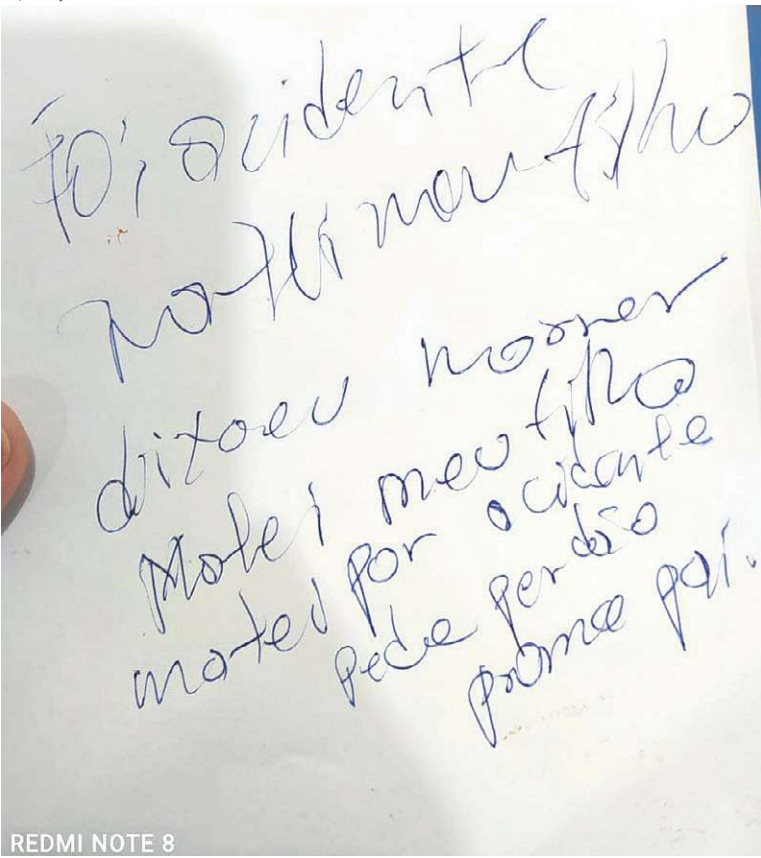 Foi, acidente
matei meu filho
dixaeu morrer
Matei meu filho
matei por acidente
pede perdão
prame pai.
REDMI NOTE 8